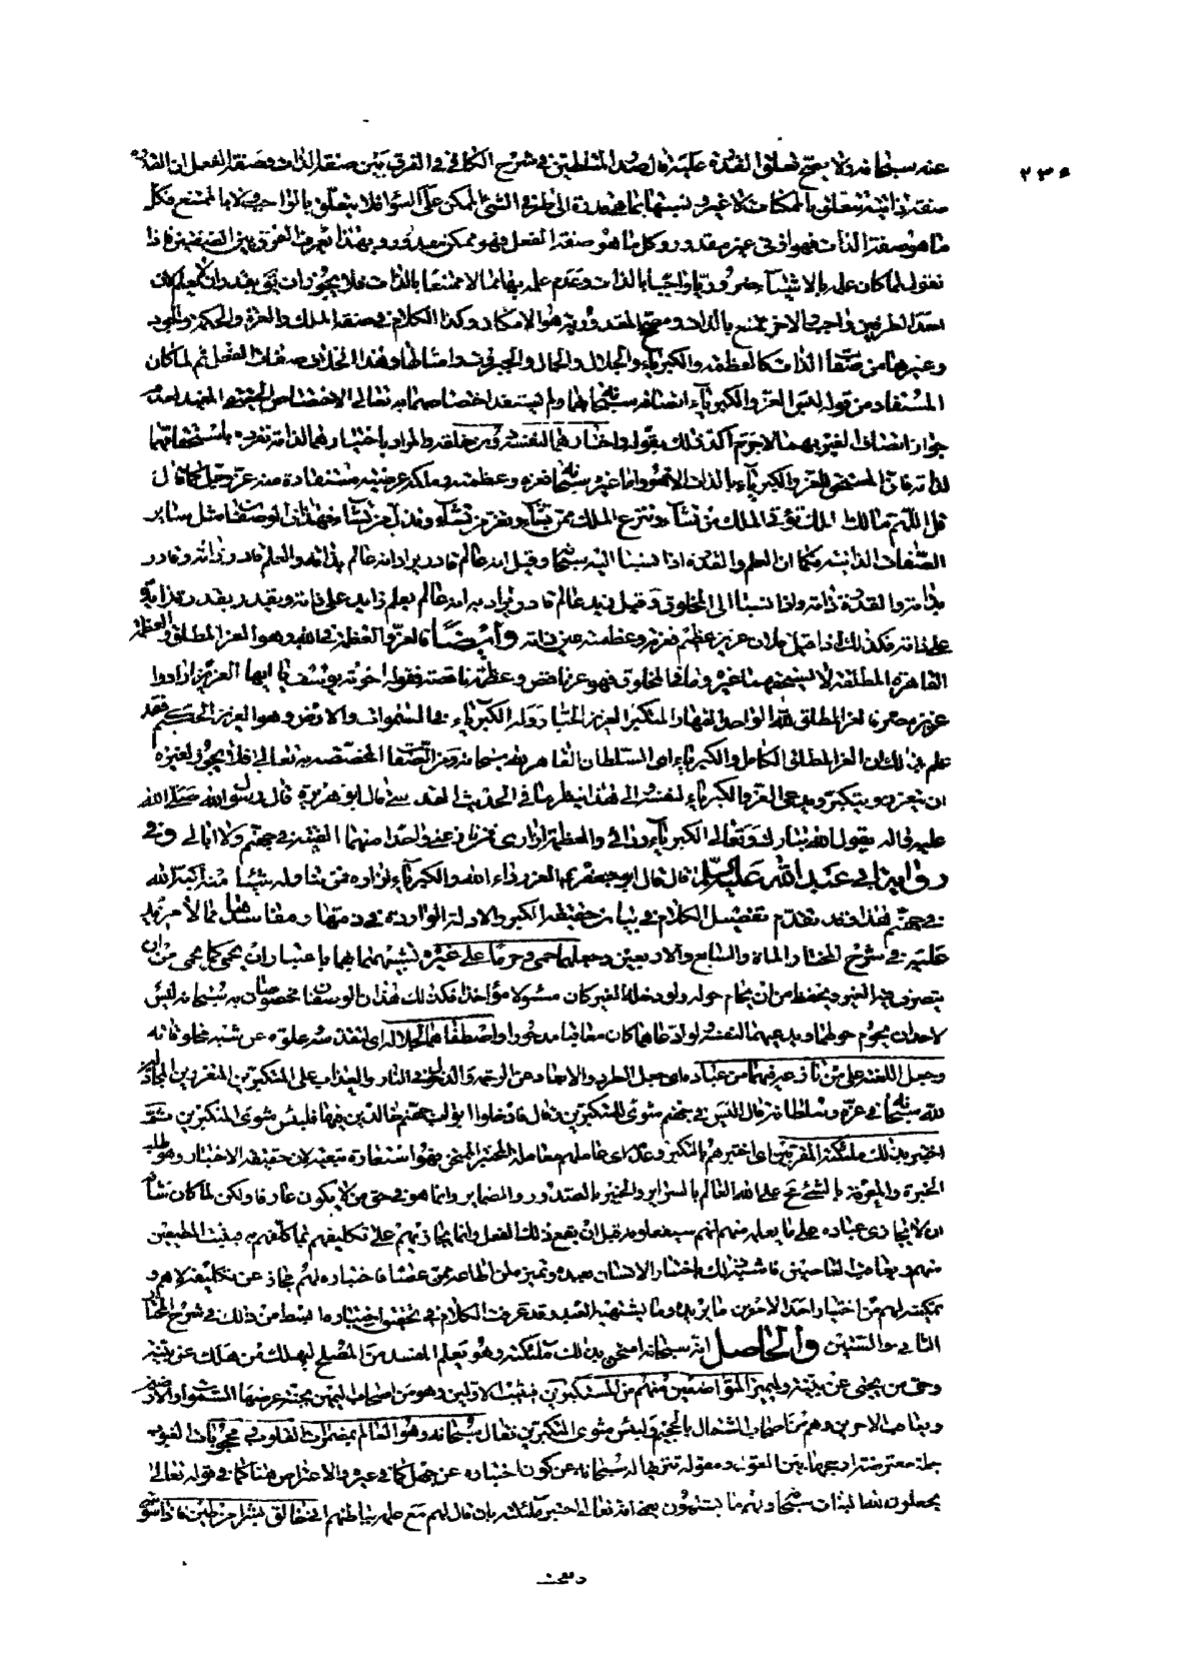 عنه سبحانه ولا يصح تعلق القدرة عليه قال صدر المتألهين في شرح الكافي في الفرق بين صفة الذات وصفة الفعل ان القدرة
صفة ذاتية تتعلق بالممكنات لا غير ونسبتها بما هي قدرة الى طرفي الشيء الممكن على السواء فلا يتعلق بالواجب ولا بالممتنع فكل
ما هو صفة الذات فهو ازلي غير مقدور وكل ما هو صفة الفعل فهو ممكن مقدور وبهذا يعرف الفرق بين الصفتين فاذا
نقول لما كان علمه بالاشياء ضروريا واجبا بالذات وعدم علمه بها محالا ممتنعا بالذات فلا يجوز ان يقدر ان لا يعلم لان
احد الطرفين واجب والاخر ممتنع بالذات ومصحح المقدورية هو الامكان وكذا الكلام في صفة الملك والعزة والحكمة والجود
وغيرها من صفات الذات كالعظمة والكبرياء والجلال والجمال والجبروت وامثالها وهذا بخلاف صفات الفعل ثم لما كان
المستفاد من قوله لبس العز والكبرياء اتصافه سبحانه بهما ولم يستفد اختصاصهما به تعالى الاختصاص الحقيقي المفيد لعدم
جواز اتصاف الغير بهما لا جرم اكد ذلك بقوله واختارهما لنفسه دون خلقه والمراد باختيارهما لذاته تفرده باستحقاقهما
لذاته فان المستحق للعز والكبرياء بالذات ليس الا هو واما غيره سبحانه فعزه وعظمته وملكه عرضية مستفادة منه عز وجل كما قال
قل اللهم مالك الملك تؤتي الملك من تشاء وتنزع الملك ممن تشاء وتعز من تشاء وتذل من تشاء فهذان الوصفان مثل ساير
الصفات الذاتية فكما ان العلم والقدرة اذا نسبتا اليه سبحانه وقيل انه عالم قادر يراد انه عالم بذاته والعلم ذاته وقادر
بذاته والقدرة ذاته واذا نسبتا الى المخلوق وقيل زيد عالم قادر يراد به انه عالم بعلم زايد على ذاته وبقدرة زايدة
على ذاته فكذلك اذا قيل فلان عزيز عظيم فعزه وعظمته غير ذاته وأيضا فالعز والعظمة في الله وهو العز المطلق والعظمة
القاهرة المطلقة لا يستحقهما غيره وما في المخلوق فهو عز ناقص وعظمة ناقصة فقول اخوة يوسف يا ايها العزيز ارادوا
عزيز مصر فالعز المطلق لله الواحد القهار المتكبر العزيز الجبار وله الكبرياء في السموات والارض وهو العزيز الحكيم فقد
علم بذلك ان العز المطلق الكامل والكبرياء اي السلطان القاهر لله سبحانه ومن الصفات المختصة به تعالى فلا يجوز لغيره
ان يتعزز ويتكبر ويدعي العز والكبرياء لنفسه والى هذا ينظر ما في الحديث القدسي قال ابو هريرة قال رسول الله صلى الله
عليه وآله يقول الله تبارك وتعالى الكبرياء ردائي والعظمة ازاري فمن نازعني واحدا منهما القيته في جهنم ولا ابالي وفي
رواية ابي عبد الله عليه السلام قال قال ابو جعفر العز رداء الله والكبرياء ازاره فمن تناول شيئا منه اكبه الله
في جهنم هذا وقد تقدم تفصيل الكلام في بيان حقيقة الكبر والادلة الواردة في ذمها ومفاسدها بما لا مزيد
عليه في شرح المختار المأة والسابع والاربعين وجعلهما حمى وحرما على غيره تشبيههما بهما باعتبار ان يحمى كما يحمى من ان
يتصرف فيه الغير ويحفظ من ان يحام حوله ولو دخله الغير كان مسئولا مؤاخذا فكذلك هذان الوصفان مخصوصان به سبحانه ليس
لاحد ان يحوم حولهما ويدعيهما لنفسه ولو ادعاهما كان معاقبا مدحورا واصطفاهما لجلاله اي لتقدسه وعلوه عن شبه مخلوقاته
وجعل اللعنة على من نازعه فيهما من عباده اي جعل الطرد والابعاد عن الرحمة والدخول في النار والعذاب على المتكبرين المتعززين المجادلين
لله سبحانه في عزه وسلطانه قال اليس في جهنم مثوى للمتكبرين فقال فادخلوا ابواب جهنم خالدين فيها فلبئس مثوى المتكبرين ثم
اختبر بذلك ملئكته المقربين اي اختبرهم بالتكبر وعدمه اي عاملهم معاملة المختبر الممتحن فهو استعارة تبعية لان حقيقة الاختبار وهو طلب
الخبرة والمعرفة بالشيء محال على الله العالم بالسراير والخبير بالصدور والضماير وانما هو في حق من لا يكون عارفا ولكن لما كان شأنه
ان لا يجازي عباده على ما يعلم منهم انهم سيفعلونه قبل ان يقع ذلك الفعل وانما يجازيهم على تكليفهم بما كلفهم به فيثيب المطيعين
منهم ويعاقب العاصين فاشبه ذلك اختبار الانسان عبيده وتميز من اطاعه ممن عصاه فاختباره لهم مجاز عن تكليفه اياهم و
تمكينه لهم من اختيار احد الامرين ما يريده وما يشتهيه العبد وقد عرفت الكلام في تحقيق اختباره بابسط من ذلك في شرح المختار
الثاني والستين والحاصل انه سبحانه امتحن بذلك ملئكته وهو يعلم المفسد من المصلح ليهلك من هلك عن بينة
وحي من يحيى عن بينة وليميز المتواضعين منهم من المستكبرين فيثيب الاولين وهو من اصحاب اليمين بجنة عرضها السموات والارض
ويعاقب الاخرين وهم من اصحاب الشمال بالجحيم ولبئس مثوى المتكبرين فقال سبحانه وهو العالم بمضمرات القلوب ومحجوبات الغيوب
جملة معترضة اوردها بين القول ومقوله تنزيها له سبحانه عن كون اختباره عن جهل كما في غيره والاعتراض هنا كما في قوله تعالى
يجعلون لله البنات سبحانه ولهم ما يشتهون يعني انه تعالى اختبر ملئكته بان قال لهم مع علمه بباطنهم اني خالق بشرا من طين فاذا سويته